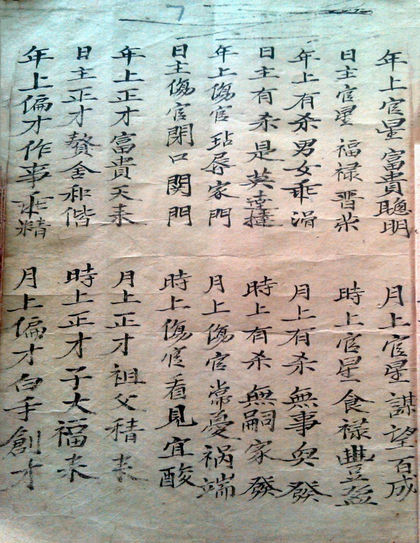 年上官星富貴聰明 月上官星謀望百成
日主官星福禄晋米 時上官星食禄豐盈
年上有杀男女乖滑 月上有杀無事興發
日主有杀是英達 時上有杀無嗣家發
年上傷官玷辱家門 月上傷官常憂祸端
日主傷官閉口関門 時上傷官看見宜酸
年上正才富貴天来 月上正才祖父積来
日主正才贅舍和偕 時上正才子大福来
年上偏才作事乖精 月上偏才白手創才